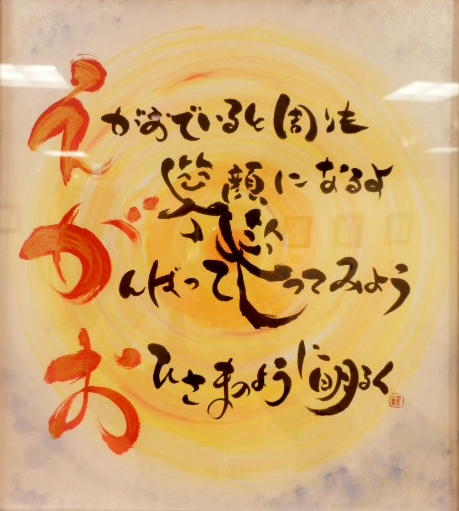 えがおでいると周りも
笑顔になるよ
がんばって笑ってみよう
おひさまのように明るく